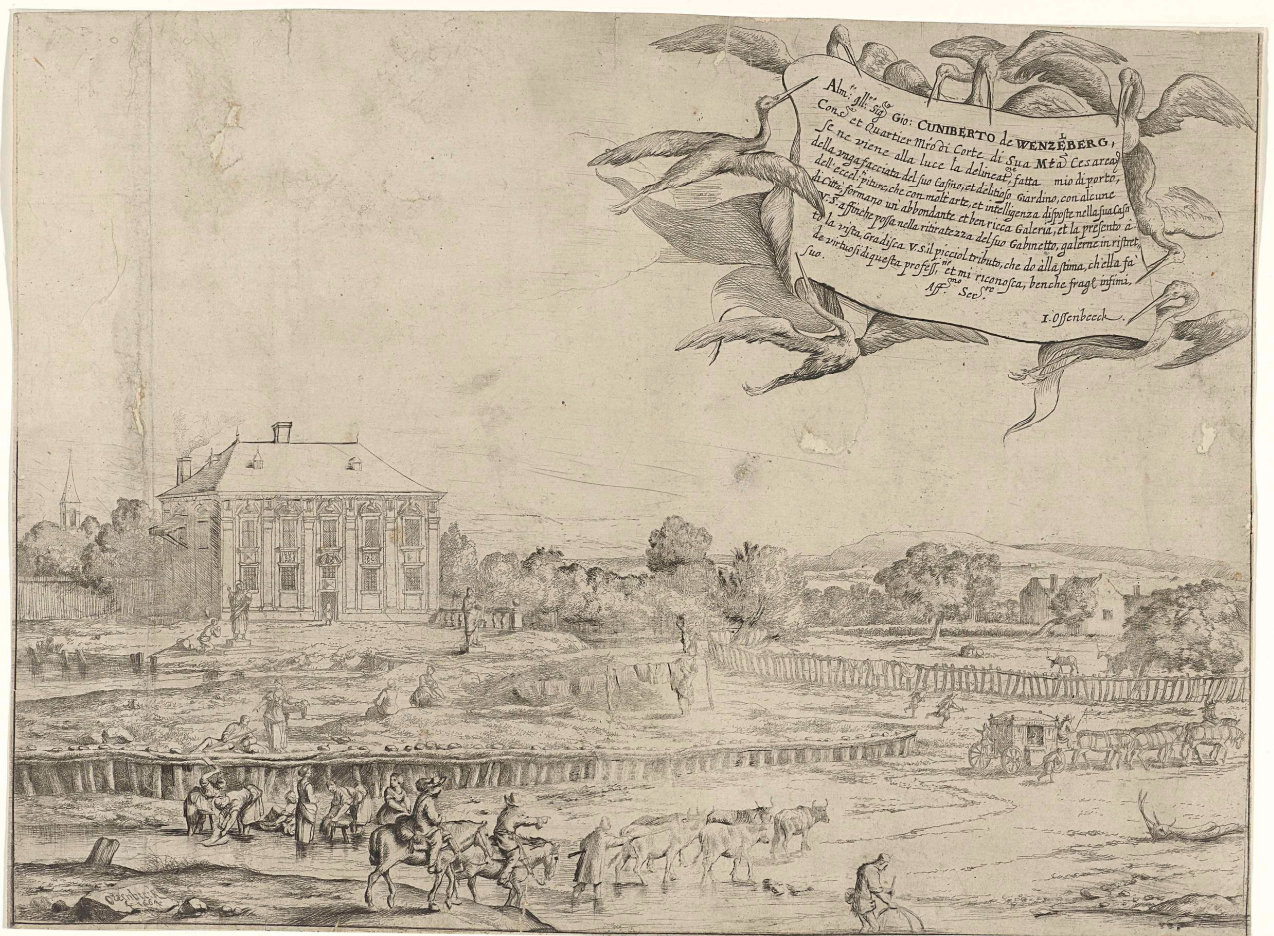 Alm.to Ill.re Sig.r Gio: CUNIBERTO de WENZELBERG,
Cons.re et Quartier Mro di Corte di Sua Mta Cesarea
se ne viene alla luce la delineat.ne fatta mio di porto,
della vaga facciata del suo Casino, et delitioso Giardino, con alcune
dell'eccel. piture, che con molt'arte, et intelligenza disposte nella sua Casa
di Città, formano un'abbondante et ben ricca Galeria, et la presento à
V.S. affinche possa nella ritiratezza del suo Gabinetto, galerne in ristret,
to la vista. Gradisca V.S. il picciol tributo, che do alla stima, ch'ella fa
de virtuosi di questa profess.ne et mi riconosca, benche fragl' infimi,
suo.
Aff.mo Ser.re
I. Ossenbeeck.